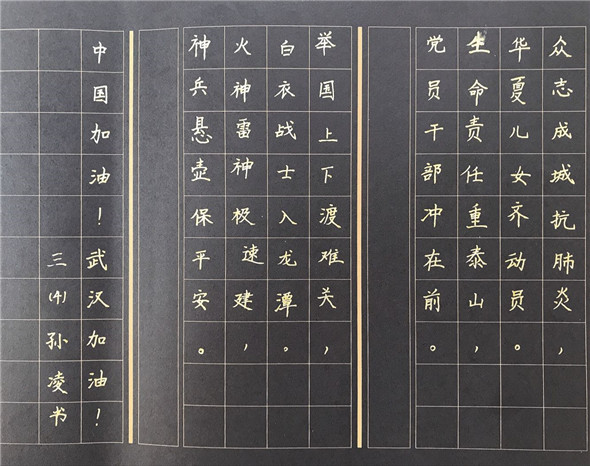 众志成城抗肺炎，
华夏儿女齐动员。
生命责任重泰山，
党员干部冲在前。
举国上下渡难关，
白衣战士入龙潭。
火神雷神极速建，
神兵悬壶保平安。
中国加油！武汉加油！
三(4)孙凌书